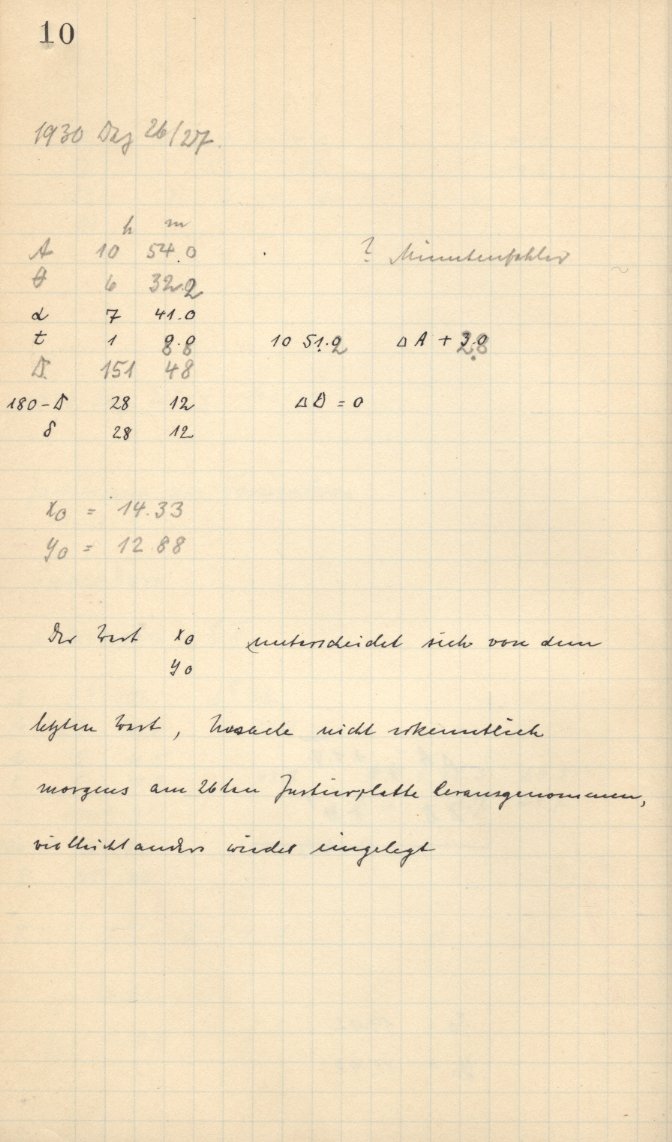 10
1930 Dez 26/27.
h m
A 10 54.0 ? Minutenfehler
θ 6 32.2
α 7 41.0
t 1 8.8 10 51.2 Δ A + 2.8
D 151 48
180 - D 28 12 Δ D = 0
δ 28 12
x0 = 14.33
y0 = 12 88
Der Wert x0 unterscheidet sich von dem
y0
letzten Wert, Ursache nicht erkenntlich
morgens am 26ten Justierplatte herausgenommen,
vielleicht anders wieder eingelegt